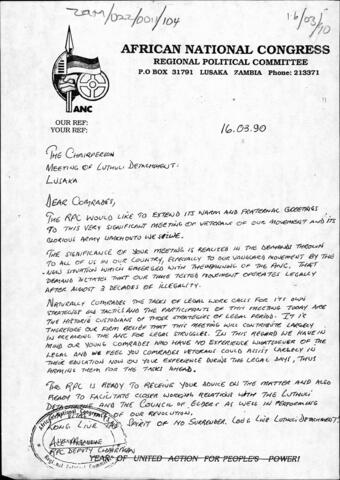 ZAM/022/001/104
16/03/90
AFRICAN NATIONAL CONGRESS
REGIONAL POLITICAL COMMITTEE
P.O BOX 31791 LUSAKA ZAMBIA Phone: 213371
ANC
OUR REF:
YOUR REF:
16.03.90
THE CHAIRPERSON
MEETING OF LUTHULI DETACHMENT:
LUSAKA
DEAR COMRADES,
THE RPC WOULD LIKE TO EXTEND ITS WARM AND FRATERNAL GREETINGS
TO THIS VERY SIGNIFICANT MEETING OF VETERANS OF OUR MOVEMENT AND ITS
GLORIOUS ARMY UMKHONTO WE SIZWE.
THE SIGNIFICANCE OF YOUR MEETING IS REALISED IN THE DEMANDS THROWN
TO ALL OF US IN OUR COUNTRY, ESPECIALLY TO OUR VANGUARD MOVEMENT BY THE
NEW SITUATION WHICH EMERGED WITH THE UNBANNING OF THE ANC. THAT
DEMAND DICTATES THAT OUR TIME TESTED MOVEMENT OPERATES LEGALLY
AFTER ALMOST 3 DECADES OF ILLEGALITY.
NATURALLY COMRADES THE TASKS OF LEGAL WORK CALLS FOR ITS OWN
STRATEGIES OR TACTICS AND THE PARTICIPANTS OF THIS MEETING TODAY ARE
THE HISTORIC CUSTODIANS OF THOSE STRATEGIES OF LEGAL PERIOD. IT IS
THEREFORE OUR FIRM BELIEF THAT THIS MEETING WILL CONTRIBUTE LARGELY
IN PREPARING THE ANC FOR LEGAL STRUGGLES. IN THAT REGARD WE HAVE IN
MIND OUR YOUNG COMRADES WHO HAVE NO EXPERIENCE WHATSOEVER OF THE
LEGAL AND WE FEEL YOU COMRADES VETERANS COULD ASSIST LARGELY IN
THEIR EDUCATION NOW ON YOUR EXPERIENCE DURING THE LEGAL DAYS, THUS
ARMING THEM FOR THE TASKS AHEAD.
THE RPC IS READY TO RECEIVE YOUR ADVICE ON THE MATTER AND ALSO
READY TO FACILITATE CLOSER WORKING RELATION WITH THE LUTHULI
DETACHMENT AND THE COUNCIL OF ELDERS AS WELL IN PERFORMING
OF OUR REVOLUTION.
LONG LIVE THE SPIRIT OF NO SURRENDER, LONG LIVE LUTHULI DETACHMENT!
RPC DEPUTY CHAIRMAN
YEAR OF UNITED ACTION FOR PEOPLE'S POWER!